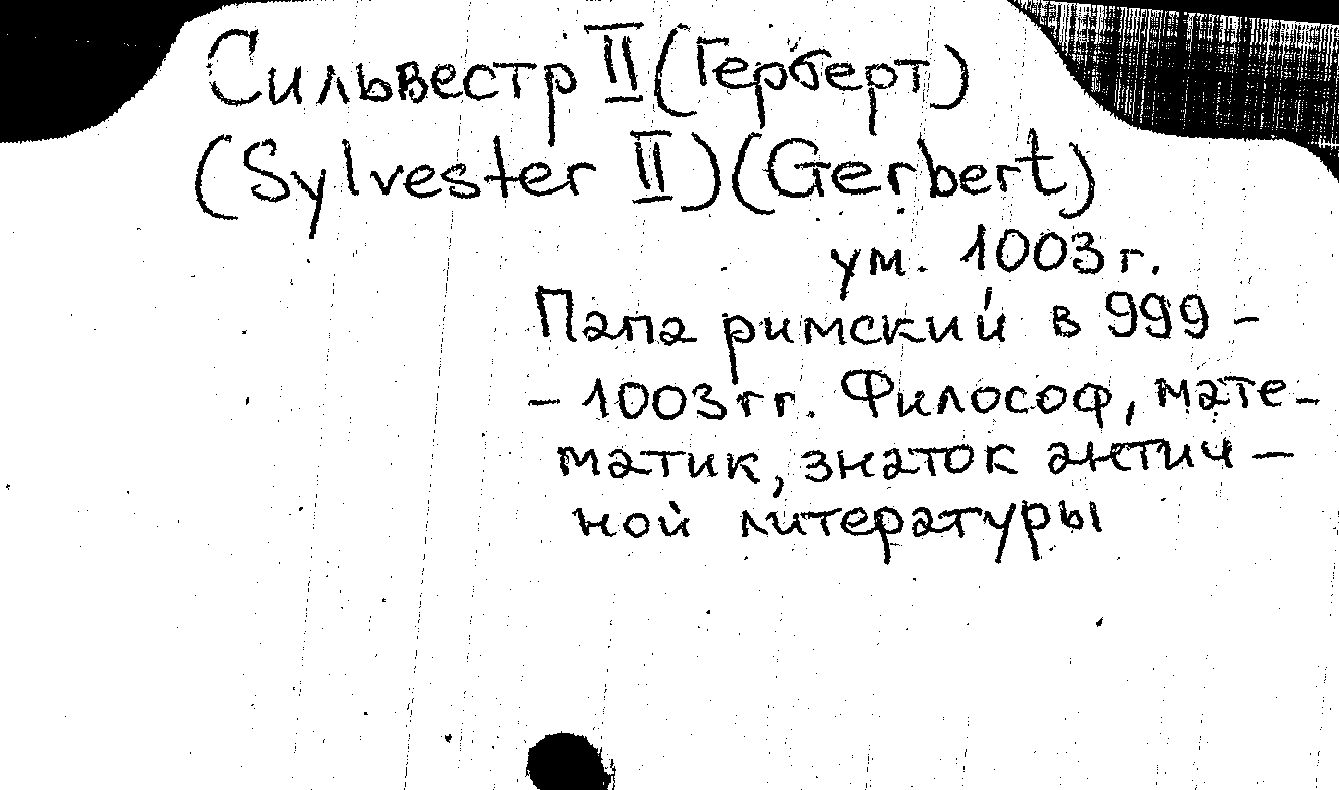 Сильвестр II (Герберт)
(Sylvester II) (Gerbert)
ум. 1003 г.
Папа римский в 999 -
- 1003 гг. Философ, мате-
матик, знаток антич-
ной литературы